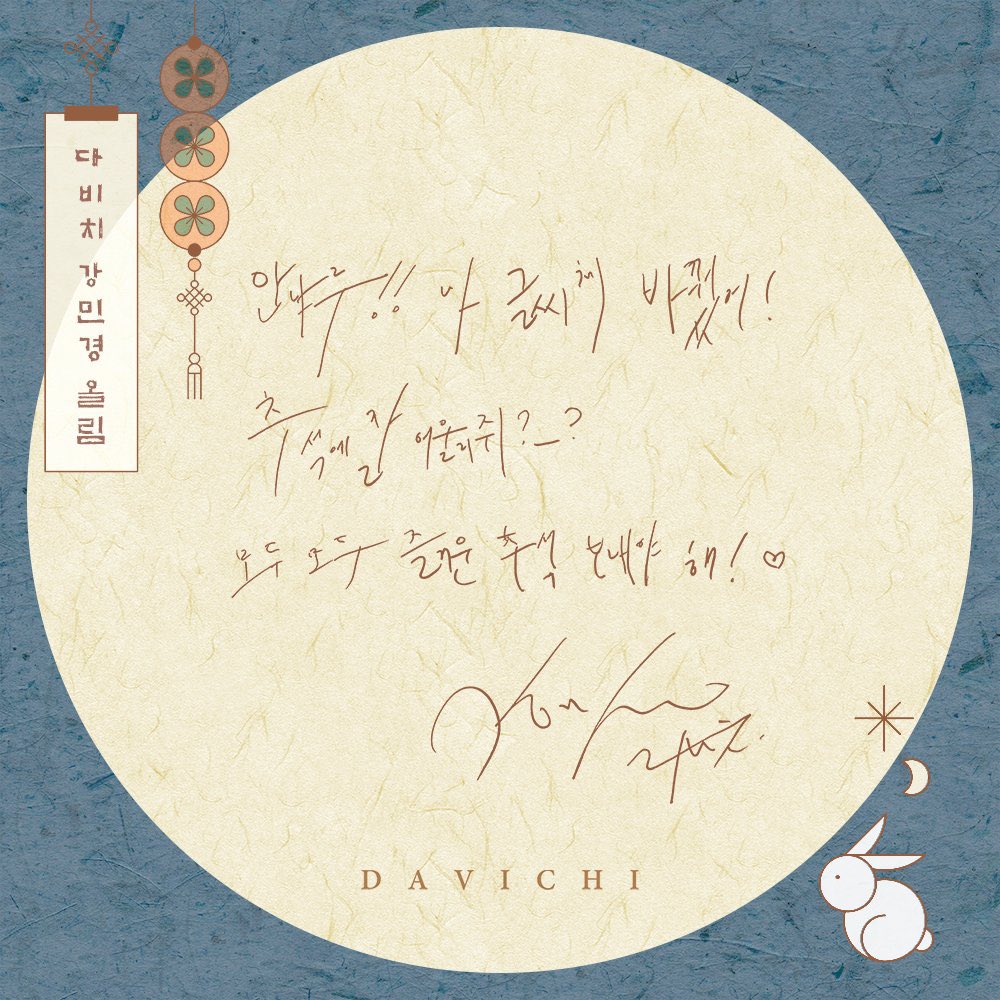 다비치 강민경 올림
안냐루!! 나 글씨체 바꿨어!
추석에 잘 어울리쥐?_?
모두 모두 즐거운 추석 보내야 해! ♡
다비치.
DAVICHI